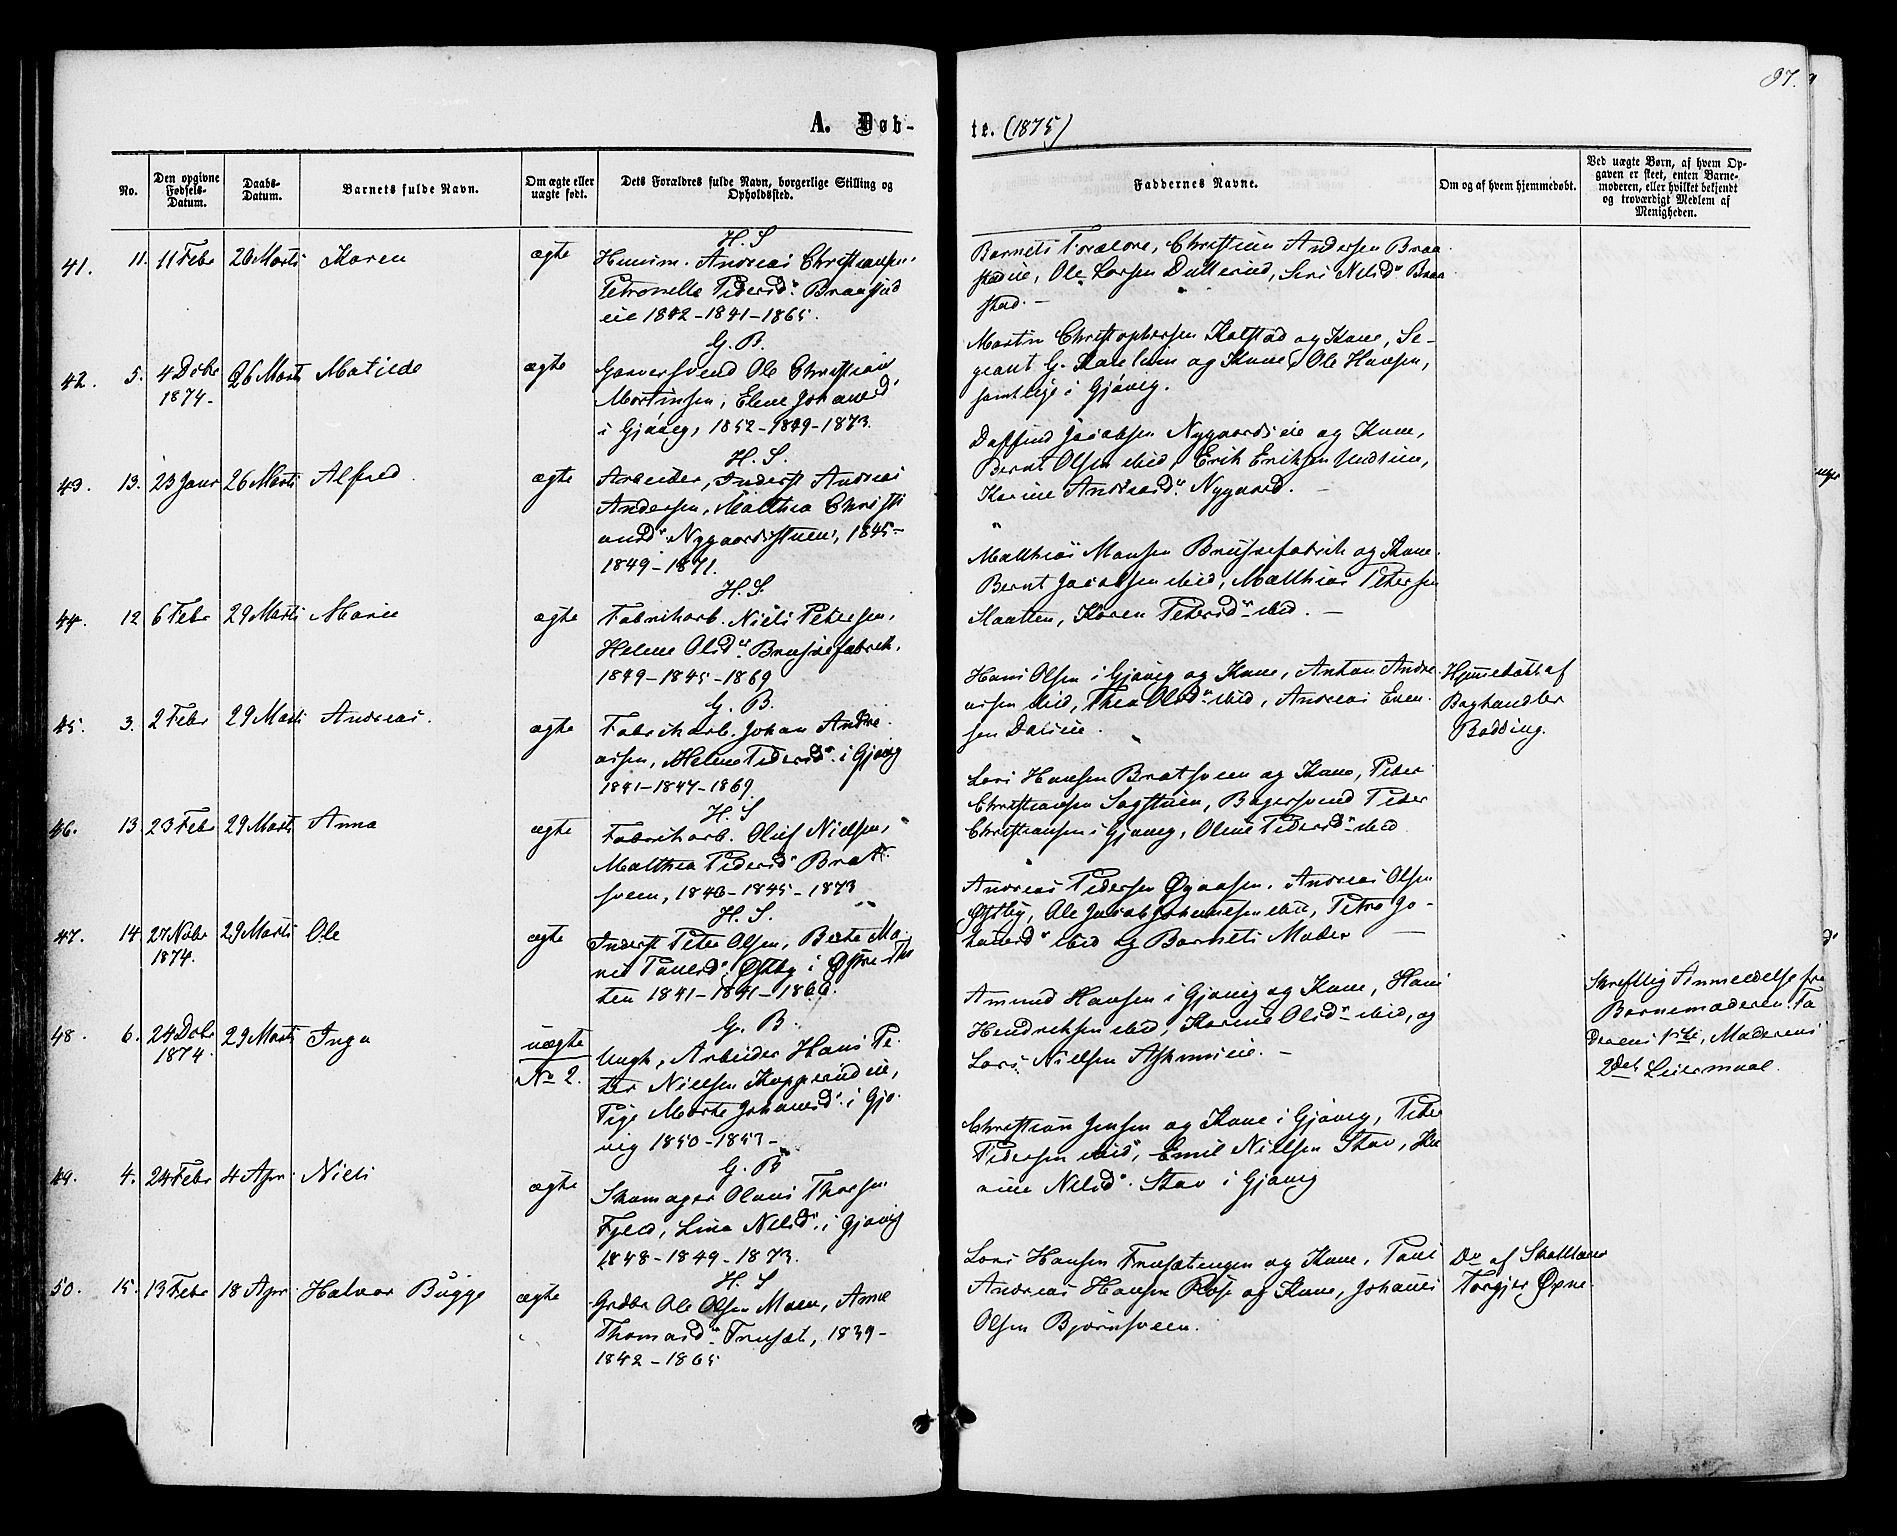 87.
A. Døb-
te. (1875)
No.
Den opgivne Fødsels-Datum.
Daabs-Datum.
Barnets fulde Navn.
Om ægte eller uægte født.
Dets Forældres fulde Navn, borgerlige Stilling og Opholdssted.
Faddernes Navne.
Om og af hvem hjemmedøbt.
Ved uægte Børn, af hvem Opgaven er skeet, enten Barnemoderen, eller hvilket bekjendt og troværdigt Medlem af Menigheden.
41. 11. 11 Febr 26 Marts Karen ægte
H. S
Huusm. Andreas Christiansen,
Petronelle Pedersd. Braastad
eie 1842-1841-1865.
Barnets Forældre, Christian Andersen Braa
stadeie, Ole Larsen Dulterud, Siri Nilsd. Braa
stad.
42. 5. 4 Dcbr 1874. 26 Marts Matilde ægte
G. B.
Garversvend Ole Christian
Martinsen, Elene Johansd.
i Gjøvig, 1852-1849-1873.
Martin Christophersen Kalstad og Kone, Se-
geant G. og Kone, Ole Hansen,
samtlige i Gjøvig.
43. 13. 23 Janr 26 Marts Alfred ægte
H. S.
Arbeider, Inderst Andreas
Andersen, Mathea Christi
ansd. Nygaardsstuen, 1845-
1849-1871.
Daffind Jacobsen Nygaardseie og Kone,
Bernt Olsen ibid, Erik Eriksen
Karine Andreasd. Nygaard.
44. 12 6 Febr 29 Marts Marie ægte
H. S.
Fabrikarb. Niels Petersen,
Helene Olsd. Brusvefabrik,
1849-1845-1869
Matthias Hansen Brusvefabrik og Kone
Bernt Jacobsen ibid, Matthias Petersen
Maatten, Karen Petersd. ibid.
45. 3. 2 Febr 29 Marts Andreas. ægte
G. B.
Fabrikarb. Johan Andre
assen, Helene Pedersd. i Gjøvig
1841-1847-1869.
Hans Olsen i Gjøvig og Kone, Anton Andre
assen ibid, Thea Olsd. ibid, Andreas Even
sen Dalseie.
Hjemedøbt af
Boghandler
Bodding.
46. 13 23 Febr 29 Marts Anna ægte
H. S
Fabrikarb. Oluf Nielsen,
Matthea Pedersd. Brat
sveen, 1846-1845-1873
Lars Hansen Bratsveen og Kone, Peder
Christiansen Sagstuen, Bagersvend Peder
Christiansen i Gjøvig, Oline Pedersd. ibid
47. 14 27 Nvbr 1874. 29 Marts Ole ægte
H. S.
Inderst Peter Olsen, Berte Ma
rie Paulsd. Østby i Østre-Tho
ten 1841-1841-1866.
Andreas Pedersen Øgaasen, Andreas Olsen
Østby, Ole Jacob Johannesen ibid, Petra Jo-
hansd. ibid og Barnets Moder
48. 6. 24 Dcbr 1874. 29 Marts Inga uægte No 2.
G. B.
Ungk, Arbeider Hans Pe
ter Nielsen Kopperudeie,
Pige Marte Johansd. i Gjø
vig 1850-1853-
Amund Hansen i Gjøvig og Kone, Hans
Hendriksen ibid, Karine Olsd. ibid, og
Lars Nielsen
Skriftlig Anmeldelse fra
Barnemoderen. Fa
derens 1ste, Moderens
2det Leiermaal.
49. 4. 24 Febr 4 Apr Niels ægte
G. B
Skomager Olaus Thorsen
Fjeld, Lina Nilsd. i Gjøvig
1848-1849-1873.
Christian Jensen og Kone i Gjøvig, Peder
Pedersen ibid, Emil Nielsen Stav, Ka
rine Nilsd. Stav i Gjøvig
50. 15. 13 Febr 18 Apr Halvor Bugge ægte
H. S
Grdbr Ole Olsen Moen, Anne
Thomasd. Frusæt, 1839-
1842-1865
Lars Hansen Frusætengen og Kone, Paul
Andreas Hansen og Kone, Johannes
Olsen Bjørnsveen.
Do af Skollærer
Torgjer Øpne